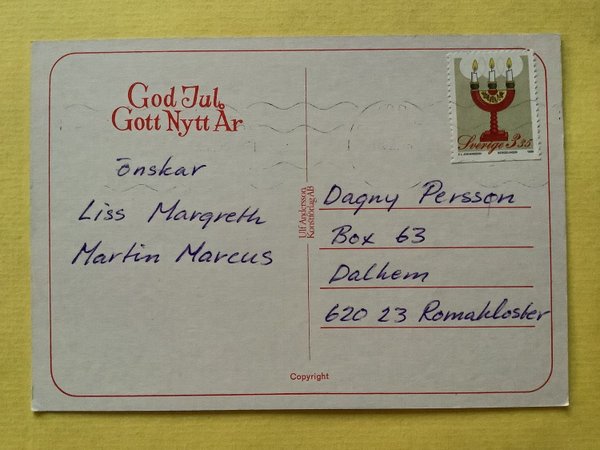 God Jul
Gott Nytt År
önskar
Liss Margreth
Martin Marcus
Ulf Andersson
Konstförlag AB
Sverige 3.35
Dagny Persson
Box 63
Dalhem
620 23 Romakloster
Copyright